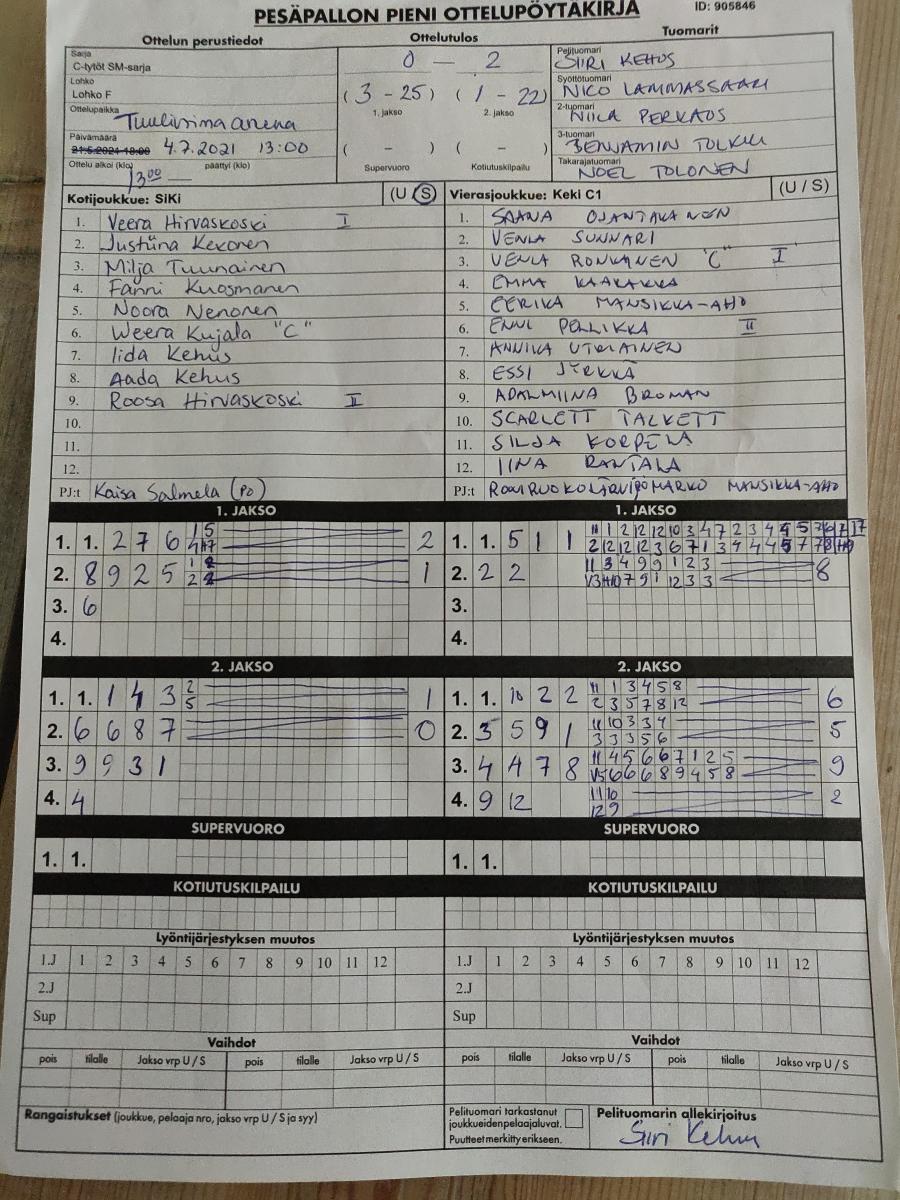 PESÄPALLON PIENI OTTELUPÖYTÄKIRJA
ID: 905846
Ottelun perustiedot
Ottelutulos
Tuomarit
Sarja
C-tytöt SM-sarja
Lohko
Lohko F
Ottelupaikka
Tuulivoima arena
Päivämäärä
4.7.2021 13:00
Ottelu alkoi (klo) päättyi (klo)
13:00 —
0 — 2
(3 - 25) (1 - 22)
1. jakso 2. jakso
( - ) ( - )
Supervuoro Kotiutuskilpailu
Pelituomari
SIIRI KEHUS
Syöttötuomari
NICO LAMMASSAARI
2-tuomari
NIILA PERKAUS
3-tuomari
BENJAMIN
Takarajatuomari
NOEL TOLONEN
Kotijoukkue: SiKi (U / S)
1. Veera Hirvaskoski I
2. Justiina Kexonen
3. Milja Tuunainen
4. Fanni Kuosmanen
5. Noora Nenonen
6. Weera Kujala "C"
7. Iida Kehus
8. Aada Kehus
9. Roosa Hirvaskoski II
10.
11.
12.
PJ:t Kaisa Salmela (PJ)
Vierasjoukkue: Keki C1 (U / S)
1. SAANA OJANTAKANEN
2. VENLA SUNNARI
3. VENLA RONKAINEN "C" I
4. EMMA KAAKAKKA
5. EERIKA MANSIKKA-AHO
6. ENNI PELLIKKA II
7. ANNIKA UTRIAINEN
8. ESSI JYRKKÄ
9. ADALMIINA BROMAN
10. SCARLETT TALKETT
11. SILJA KORPELA
12. IINA RANTALA
PJ:t MARKO MANSIKKA-AHO
1. JAKSO
1. 1. 2 7 6 2
2. 8 9 2 5 1
3. 6
4.
1. JAKSO
1. 1. 5 1 1
2. 2 2 8
3.
4.
2. JAKSO
1. 1. 1 4 3 2 5 1
2. 6 6 8 7 0
3. 9 9 3 1
4. 4
2. JAKSO
1. 1. 10 2 2 11 1 3 4 5 8 6
2 3 5 7 8 12
2. 3 5 9 1 11 10 3 3 4 5
3 3 3 5 6
3. 4 4 7 8 11 4 5 6 6 7 1 2 5 9
V5 6 6 6 8 9 4 5 8
4. 9 12 11 10 2
12 9
SUPERVUORO
1. 1.
SUPERVUORO
1. 1.
KOTIUTUSKILPAILU
KOTIUTUSKILPAILU
Lyöntijärjestyksen muutos
1.J 1 2 3 4 5 6 7 8 9 10 11 12
2.J
Sup
Lyöntijärjestyksen muutos
1.J 1 2 3 4 5 6 7 8 9 10 11 12
2.J
Sup
Vaihdot
pois tilalle Jakso vrp U / S pois tilalle Jakso vrp U / S
Vaihdot
pois tilalle Jakso vrp U / S pois tilalle Jakso vrp U / S
Rangaistukset (joukkue, pelaaja nro, jakso vrp U / S ja syy)
Pelituomari tarkastanut
joukkueiden pelaajaluvat.
Puutteet merkitty erikseen.
Pelituomarin allekirjoitus
Siiri Kehus